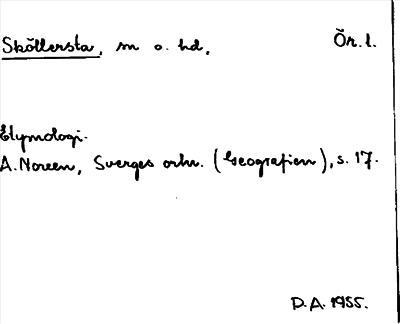 Sköllersta, sn o. hd, Ör. l.
Etymologi.
A. Noreen, Sverges ortn. (Geografien), s. 17.
D. A. 1955.